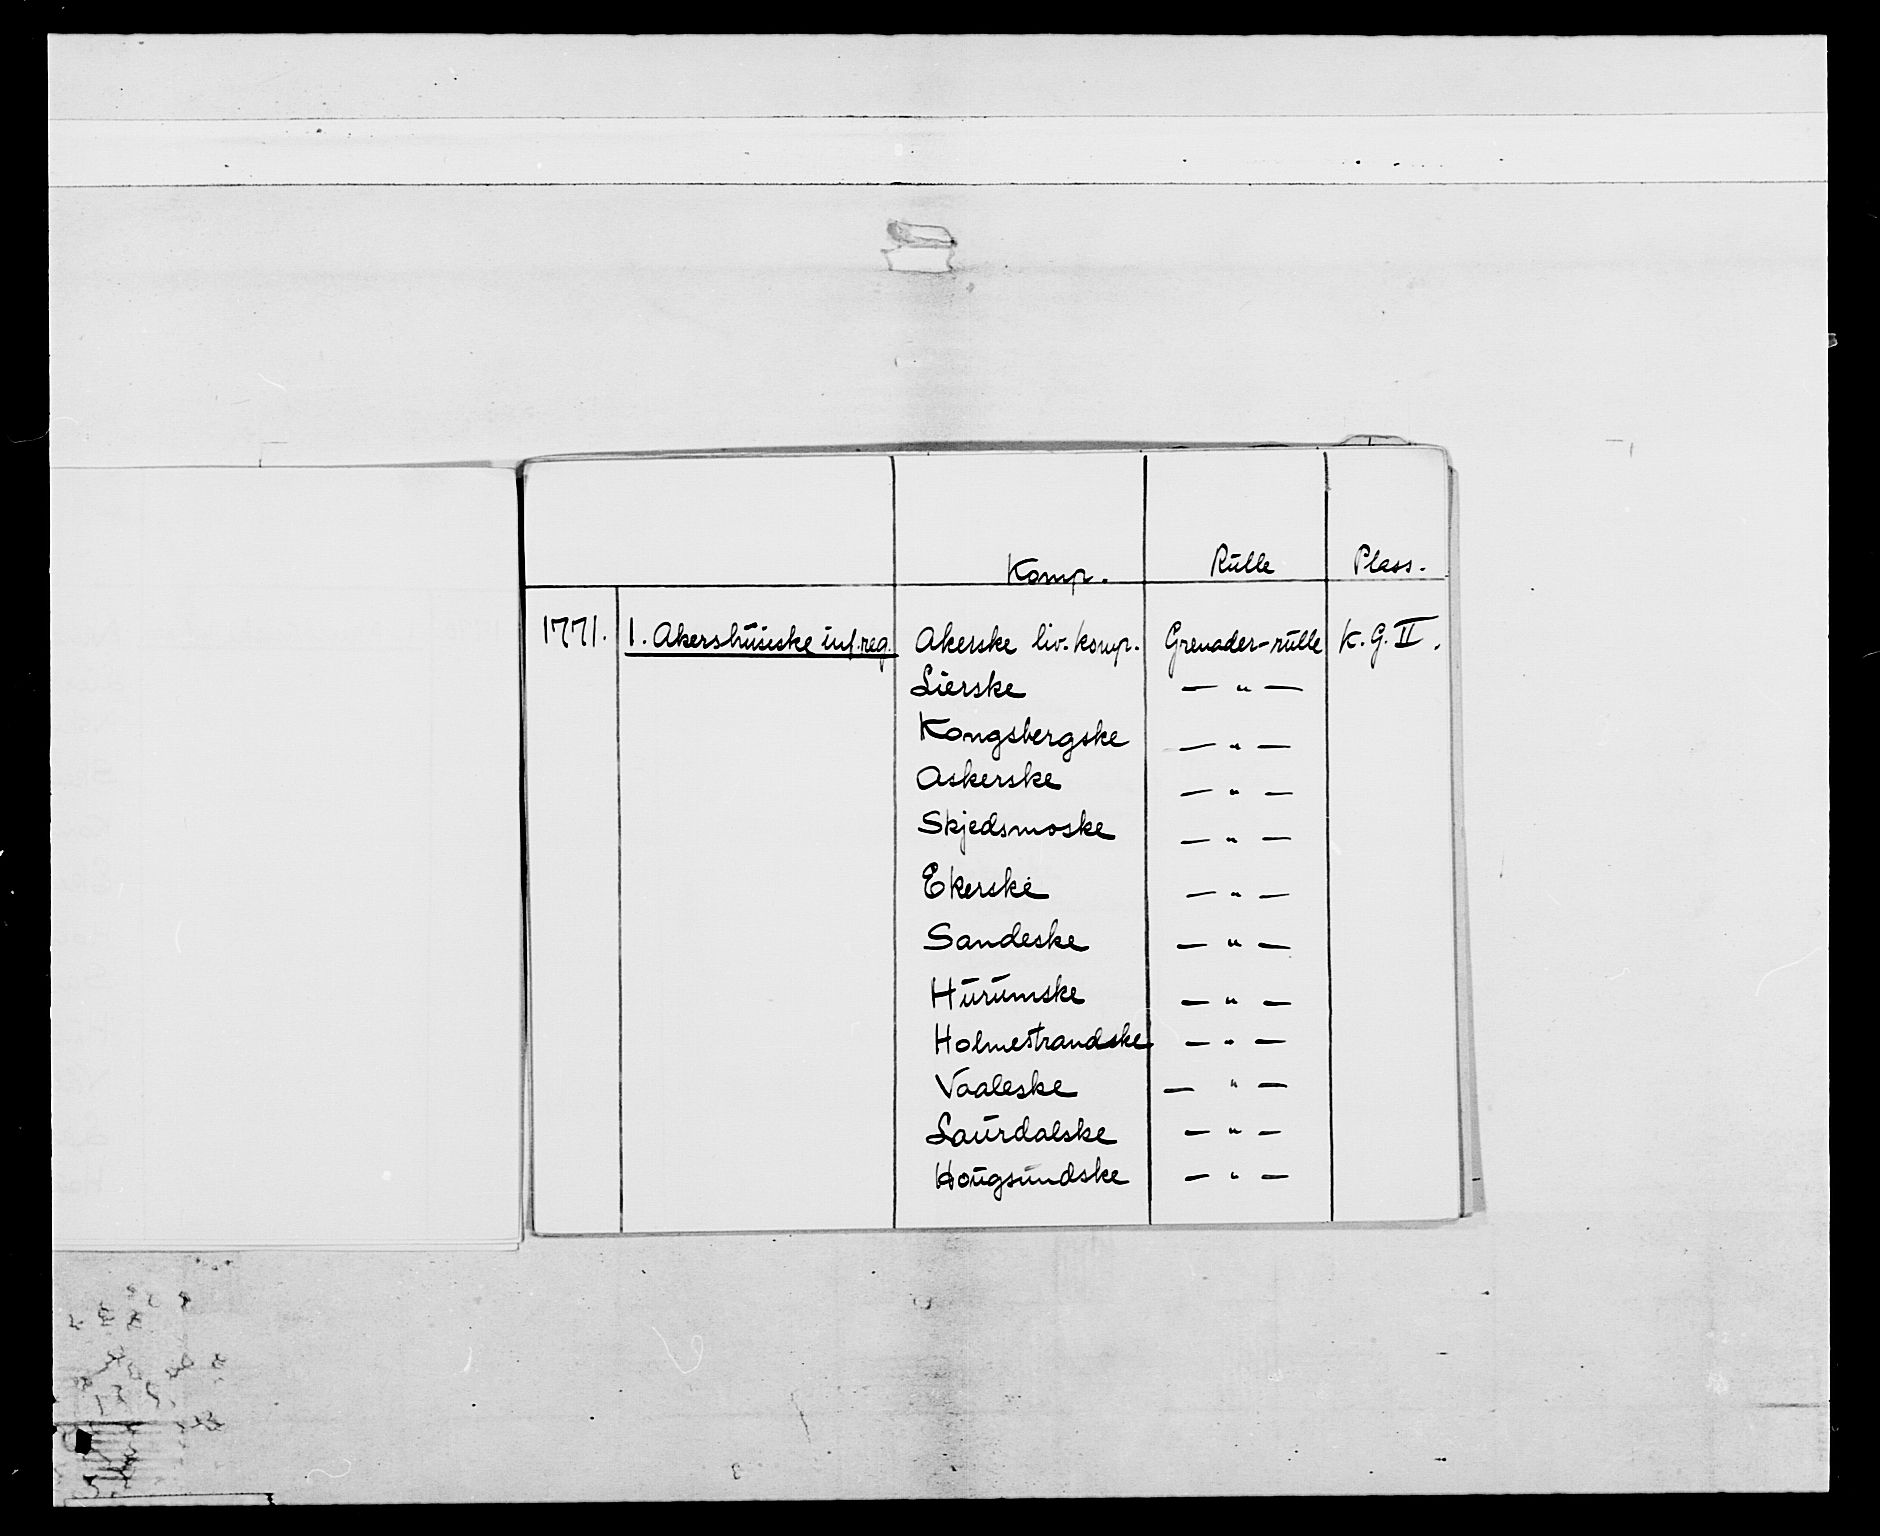 Komp. Rulle Plass.
1771. 1. Akershusiske inf.reg. Akerske liv. komp. Grenader-rulle K. G. II.
Lierske — " —
Kongsbergske — " —
Askerske — " —
Skjedsmoske — " —
Ekerske — " —
Sandeske — " —
Hurumske — " —
Holmestrandske — " —
Vaaleske — " —
Laurdalske — " —
Hougsundske — " —